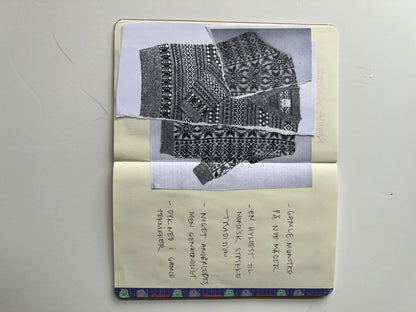 - GAMLE MØNSTRE
PÅ NYE MÅDER
- EN HYLDEST TIL
NORDISK STRIKKE
TRADITION
- NOGET ANDERLEDES,
MEN GENKENDELIGT
- DYK NED I GAMLE
TEKNIKKER